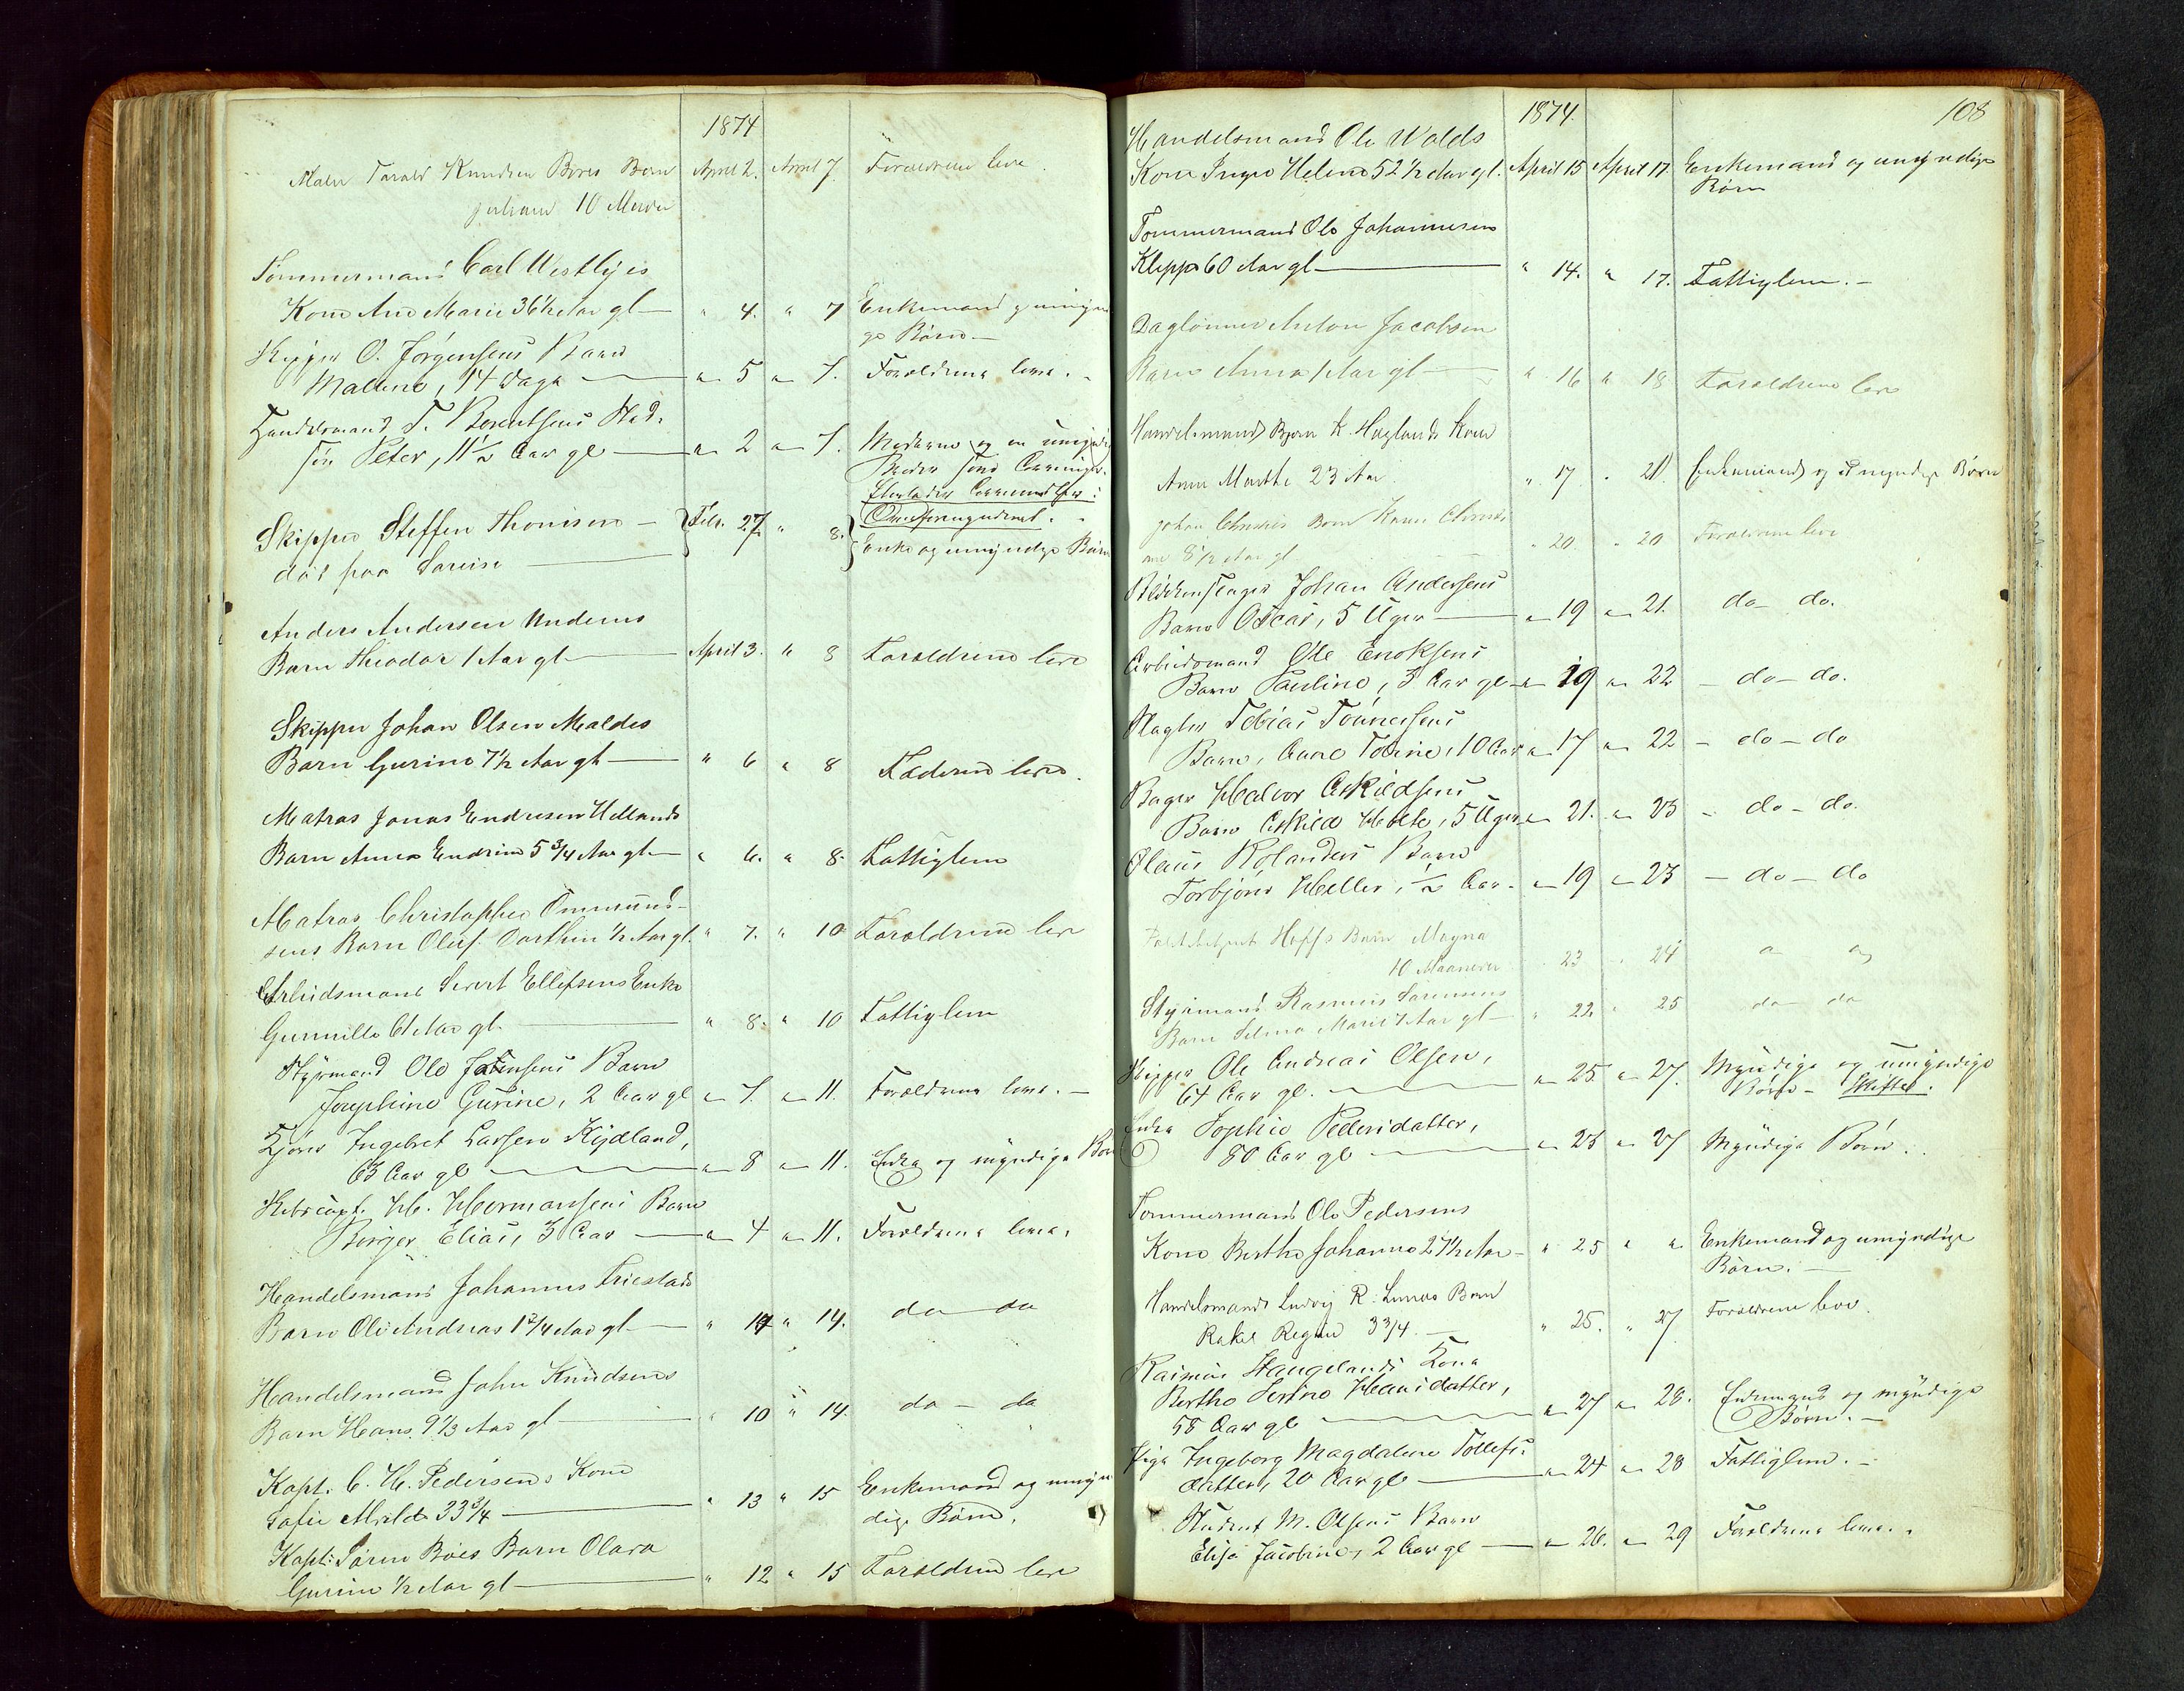 1874
Maler Tarald Knudsen Børes Barn April 2. April 7. Forældrene leve
10 Mdr
Tømmermand Carl Westlyes
Kone Ane Marie 36½ Aar gl — " 4. " 7 Enkemand og umyn
ge Børn —
Skipper O. Jørgensens Barn
Maline, 14 Dage — " 5 " 7. Forældrene leve. -
Handelsmand T. Berentsens Sted-
søn Peter, 11½ Aar gl — " 2 " 7. Moderen og en umyndig
Broder som Arvinger.
Skipper Steffen Thomsen — Febr. 27 " 8.
død paa Enke og umyndige Børn
Anders Andersen Undems
Barn Theodor 1 Aar gl — April 3. " 8 Forældrene leve
Skipper Johan Olsen Maldes
Barn Gurine 7½ Aar gl — " 6 " 8 Faderen leve.
Matros Jonas Endresen Hellands
Barn Anna Endrine 5¾ Aar gl — " 6. " 8. Fattiglem
Matros Christopher Ommund-
sens Barn Oluf Dorthin ½ Aar gl. " 7. " 10 Forældrene leve
Arbeidsmand Sivert Ellefsens Enke
Gunnille 61 Aar gl. — " 8. " 10 Fattiglem
Styrmand Ole Jensens Barn
Josephine Gurine, 2 Aar gl " 7. " 11. Forældrene leve. —
Ingebret Larsen Kydland,
63 Aar gl — " 8 " 11. Enke og myndige Børn
Skibscapt. H. Hermansens Barn
Børger Elias, 3 Aar — " 4 " 11. Forældrene leve.
Handelsmand Johannes Friestads
Barn Ole Andreas 1¾ Aar gl — " 14 " 14. do — do
Handelsmand John Knudsens
Barn Hans 9⅓ Aar gl — " 10 " 14. do — do
Kapt. C. H. Pedersens Kone
Sofie Mrilde 33¾ — " 13 " 15 Enkemand og umyn
dige Børn.
Kapt: Søren Bøes Barn Olava
Gurine ½ Aar gl — " 12 " 15 Forældrene leve
108
1874.
Handelsmand Ole Wolds
Kone Inger Helene 52½ Aar gl. April 15 April 17. Enkemand og umyndige
Børn
Tømmermand Ole Johannesen
Klepp 60 Aar gl — " 14. " 17. Fattiglem. -
Daglønner Anton Jacobsen
Barn Anna 1 Aar gl — " 16 " 18 Forældrene leve
Handelsmand Bjørn K. Høglands Kone
Anna Marthe 23 Aar " 17 " 21. Enkemand og umyndige Børn
Johan Barn
8½ Aar gl " 20. " 20 Forældrene leve
Blikkenslager Johan Andersens
Barn Oscar, 5 Uger — " 19 " 21. do — do.
Arbeidsmand Ole Enoksens
Barn Pauline, 3 Aar gl — " 19 " 22 — do — do.
Slagter Tobias Tønnesens
Barn, Anne Tobine, 10 Aar " 17 " 22 — do — do
Bager Halvor Askildsens
Barn Askild Holte, 5 Uger " 21. " 23 — do — do.
Olaus Rolanders Barn
Torbjørn Heller, ½ Aar. " 19 " 23 — do — do
Hoffs Barn Magna
10 Maaneder " 23 " 24
Styrmand Rasmus Sørensens
Barn Selma Marie 7 Aar gl — " 22 " 25 do — do
Skipper Ole Andreas Olsen,
64 Aar gl. — " 25. " 27. Myndige og umyndige
Børn — Skifte.
Enke Sophie Pedersdatter,
80 Aar gl — " 25 " 27 Myndige Børn.
Tømmermand Ole Pedersens
Kone Berthe Johanne 27½ Aar — " 25 " " Enkemand og umyndige
Børn. —
Handelsmand Ludvig R. Lunds Barn
Rakel Regine 3¾. — " 25. " 27 Forældrene leve.
Rasmus Haugelands Kone
Berthe Serine Hansdatter,
58 Aar gl — " 27 " 28. Enkemand og myndige
Børn. —
Pige Ingeborg Magdalene Tollefs-
datter, 20 Aar gl — " 24 " 28 Fattiglem. -
Student M. Olsens Barn
Elisa Jacobine, 2 Aar gl — " 26. " 29 Forældrene leve. -